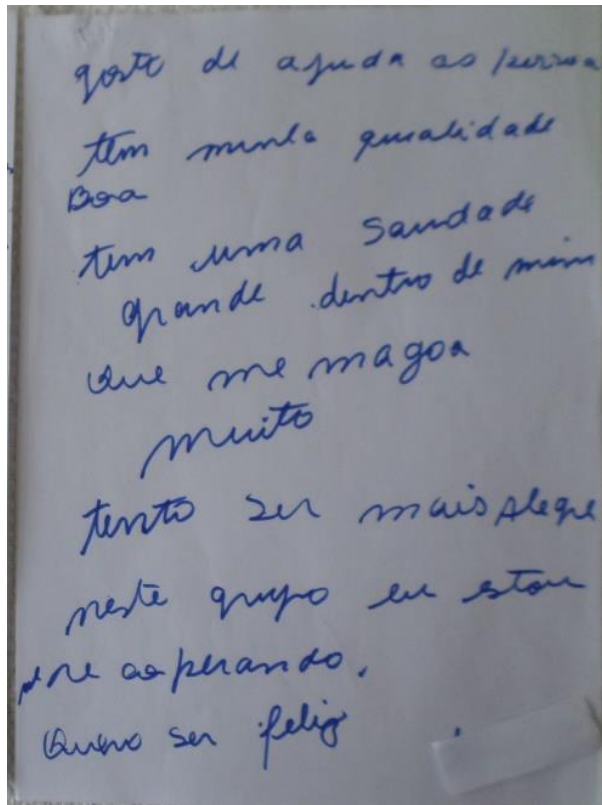 gosto de ajuda as pessoa
tem minha qualidade
Boa
tem uma saudade
grande dentro de mim
que me magoa
muito
tento ser mais alegre
neste grupo eu estou
me
Quero ser feliz